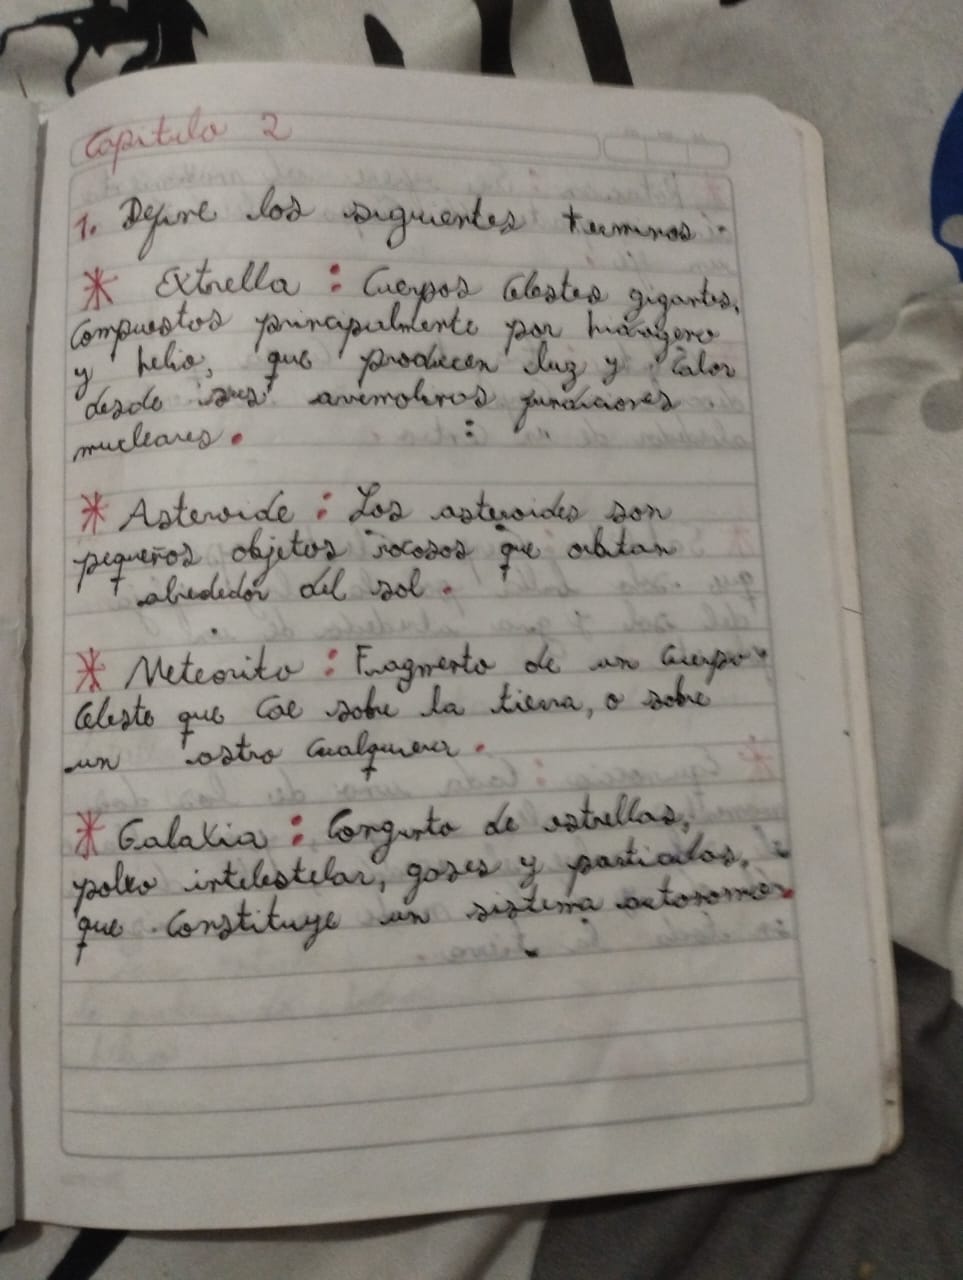 Capitulo 2
1. Define los siguientes terminos:
* Extrella : Cuerpos Celestes gigantes,
Compuestos principalmente por hidrogeno
y helio, que producen luz y calor
desde sus fundiciones
nucleares.
* Asteroide : Los asteroides son
pequeños objetos rocosos que orbitan
alrededor del sol.
* Meteorito : Fragmento de un Cuerpo
Celeste que Cae sobre la tierra, o sobre
un astro Cualquiera.
* Galaxia : Conjunto de estrellas,
polvo intelestelar, gases y particulas,
que Constituye un sistema autonomo.